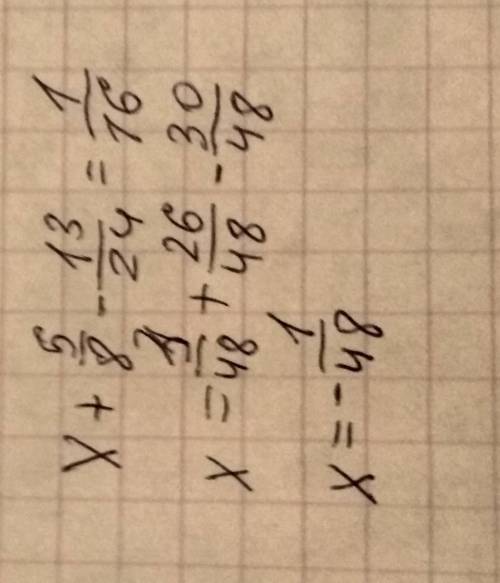 x + 5/8 - 13/24 = 1/16
x = 3/48 + 26/48 - 30/48
x = - 1/48